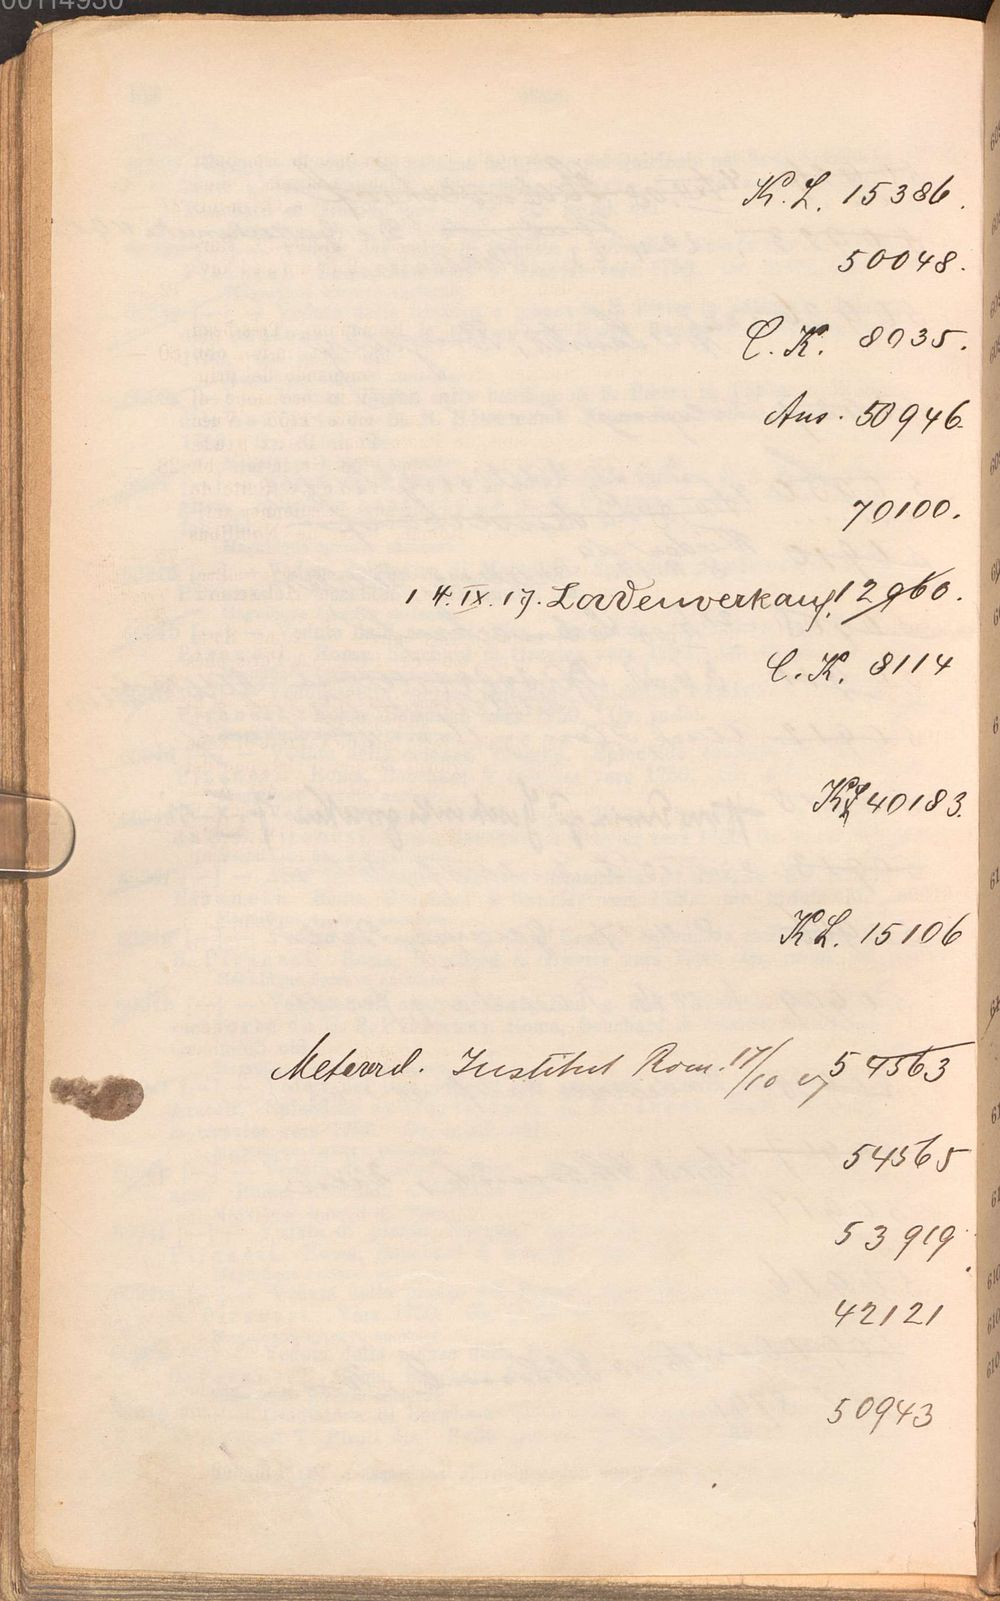 00114930
K. L. 15386.
50048.
C. K. 8035.
Aus. 50946.
70100.
14. IX. 17. Ladenverkauf. 12960.
C. K. 8114
KL 40183.
KL. 15106
Institut Rom. 17/10 07 54563
54565
53919.
42121
50943